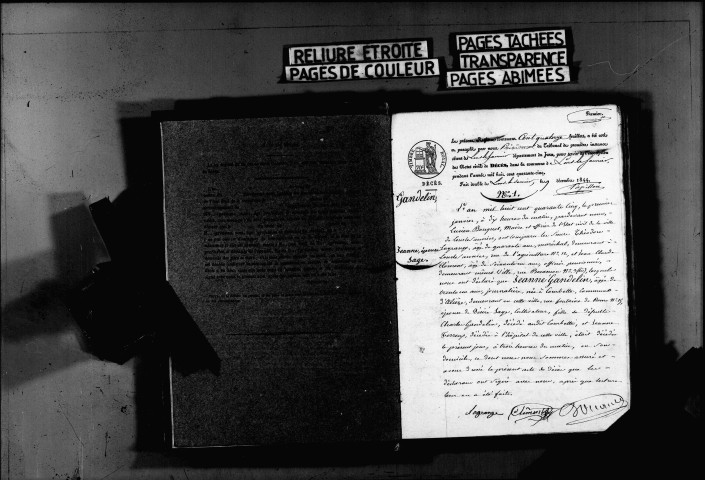 RELIURE ETROITE
PAGES DE COULEUR
PAGES TACHÉES
TRANSPARENCE
PAGES ABIMÉES
Premier
Le présent registre contenant Cent quatorze feuillets, a été coté
et paraphé par nous Président du Tribunal de première instance
séant à Lons-le-Saunier, département du Jura, pour servir à l'inscription
des Actes civils de DÉCÈS, dans la commune de Lons-le-Saunier,
pendant l'année mil huit cent quarante-cinq.
Fait double à Lons-le-Saunier, le 9 décembre 1844.
Papillon
DÉCÈS.
N.° 1.
Gandelin,
Jeanne, épouse
Sage.
L'an mil huit cent quarante cinq, le premier
janvier, à dix heures du matin, pardevant nous,
Lucien Bouquet, Maire et officier de l'Etat civil de la ville
de Lons-le-Saunier, ont comparu les Sieurs Théodore
Lagrange, âgé de quarante ans, menuisier, demeurant à
Lons-le-Saunier, rue de l'aguillon N.° 12, et Jean Claude
Clément, âgé de Soixante six ans, officier pensionné,
demeurant même Ville, rue lesquels
nous ont déclaré que Jeanne Gandelin, âgée de
trente six ans, journalière, née à Combette, Commune
d'Alièze, demeurant en cette ville, rue fontaine de Rome
épouse de Désiré Sage, Cultivateur, fille de défunts
Claude Gandelin, décédé audit Combette, et Jeanne
décédée à l'hôpital de cette ville, était décédée
le présent jour, à trois heures du matin, en Son
domicile, ce dont nous nous Sommes assuré et
avons dressé le présent acte de décès que les
déclarans ont Signé avec nous, après que lecture
leur en a été faite.
Lagrange Clément Bouquet